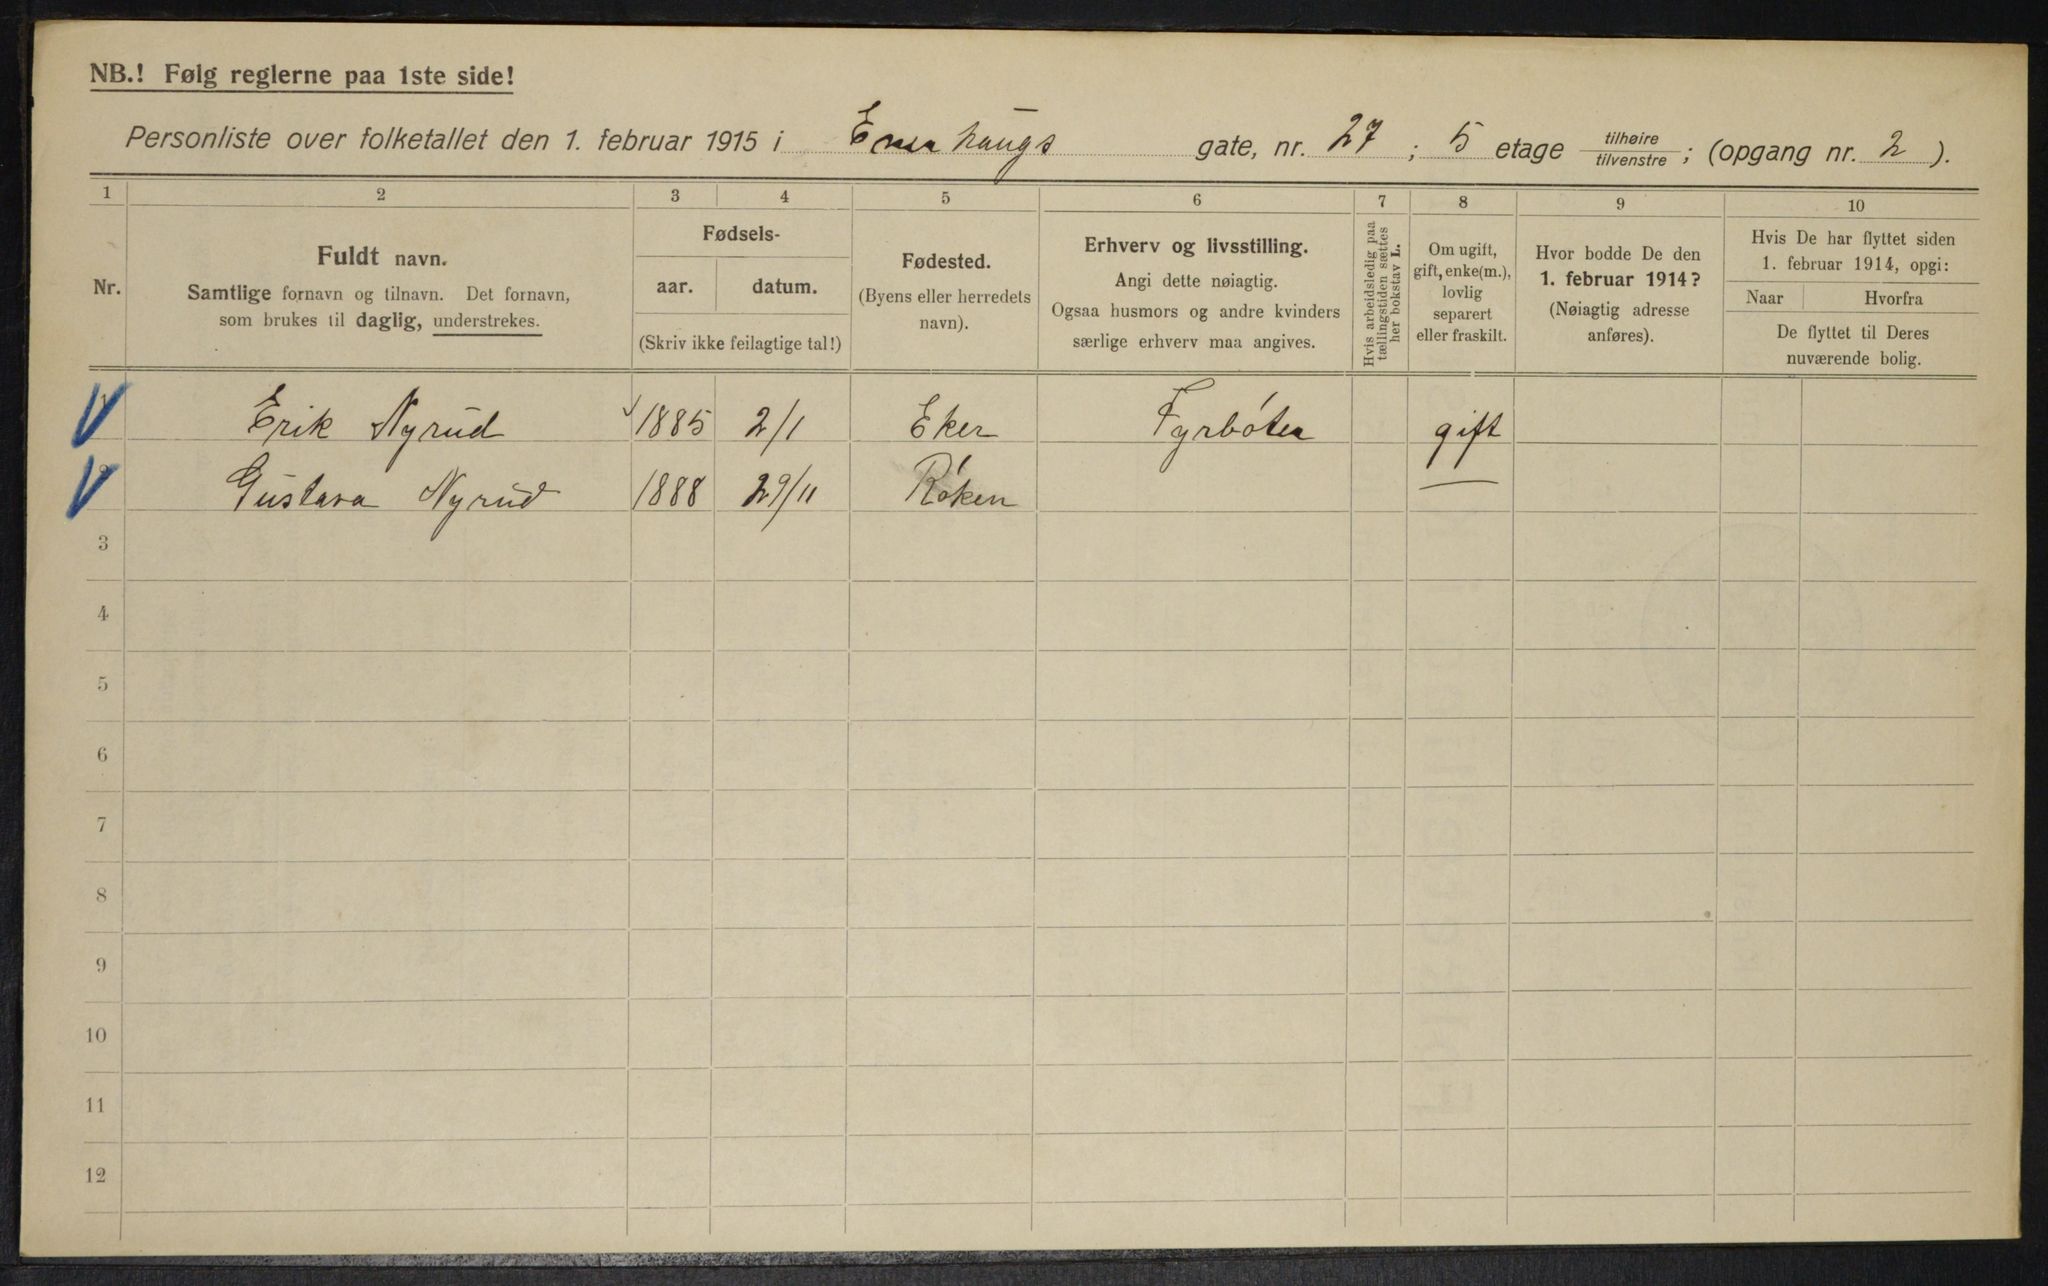 NB.! Følg reglerne paa 1ste side!
Personliste over folketallet den 1. februar 1915 i Enerhaugs gate, nr. 27 ; 5 etage tilhøire / tilvenstre ; (opgang nr. 2 ).
1 2 3 4 5 6 7 8 9 10
Nr.
Fuldt navn.
Samtlige fornavn og tilnavn. Det fornavn,
som brukes til daglig, understrekes.
Fødsels-
aar. datum.
(Skriv ikke feilagtige tal!)
Fødested.
(Byens eller herredets
navn).
Erhverv og livsstilling.
Angi dette nøiagtig.
Ogsaa husmors og andre kvinders
særlige erhverv maa angives.
Hvis arbeidsledig paa
tællingstiden sættes
her bokstav L.
Om ugift,
gift, enke(m.),
lovlig
separert
eller fraskilt.
Hvor bodde De den
1. februar 1914?
(Nøiagtig adresse
anføres).
Hvis De har flyttet siden
1. februar 1914, opgi:
Naar Hvorfra
De flyttet til Deres
nuværende bolig.
1 Erik Nyrud 1885 2/1 Eker Fyrbóter gift
2 Gustava Nyrud 1888 29/11 Róken —
3
4
5
6
7
8
9
10
11
12